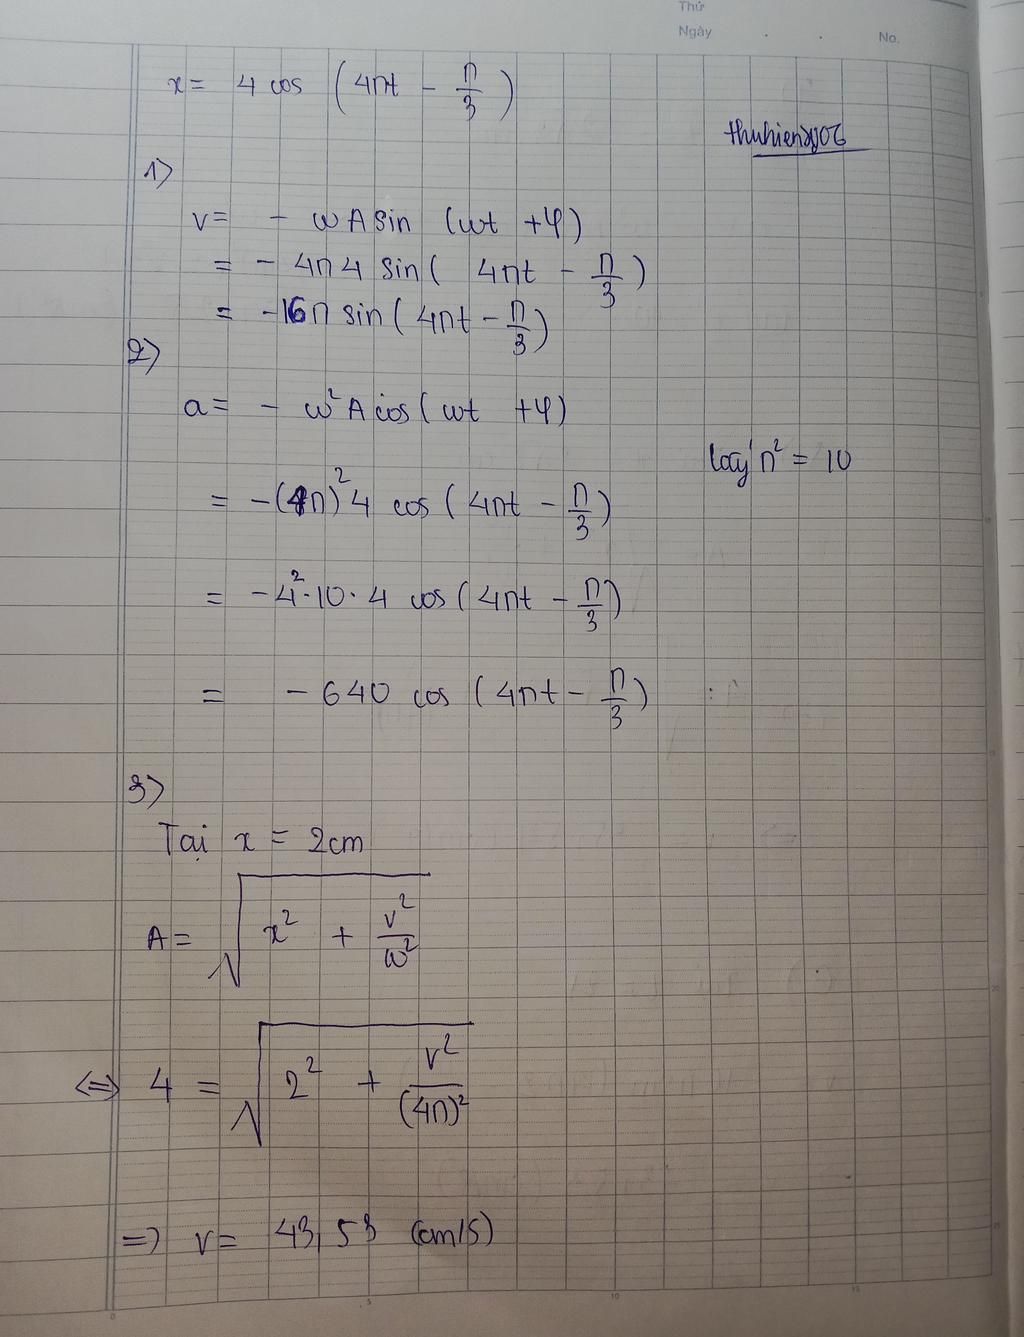 Thứ
Ngày . . No.
x = 4 cos (4πt - π/3)
thuhien2706
1)
v = - ωA sin (ωt + φ)
= - 4π4 sin( 4πt - π/3 )
= -16π sin( 4πt - π/3 )
2)
a = - ω²A cos( ωt + φ)
lấy π² = 10
= -(4π)²4 cos (4πt - π/3)
= -4²·10·4 cos (4πt - π/3)
= - 640 cos (4πt - π/3)
3)
Tại x = 2cm
A = √(x² + v²/ω²)
<=> 4 = √(2² + v²/(4π)²)
=> v = 43,53 (cm/s)
5
10
15